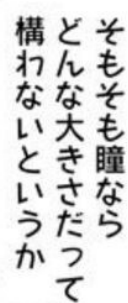 そもそも瞳なら
どんな大きさだって
構わないというか